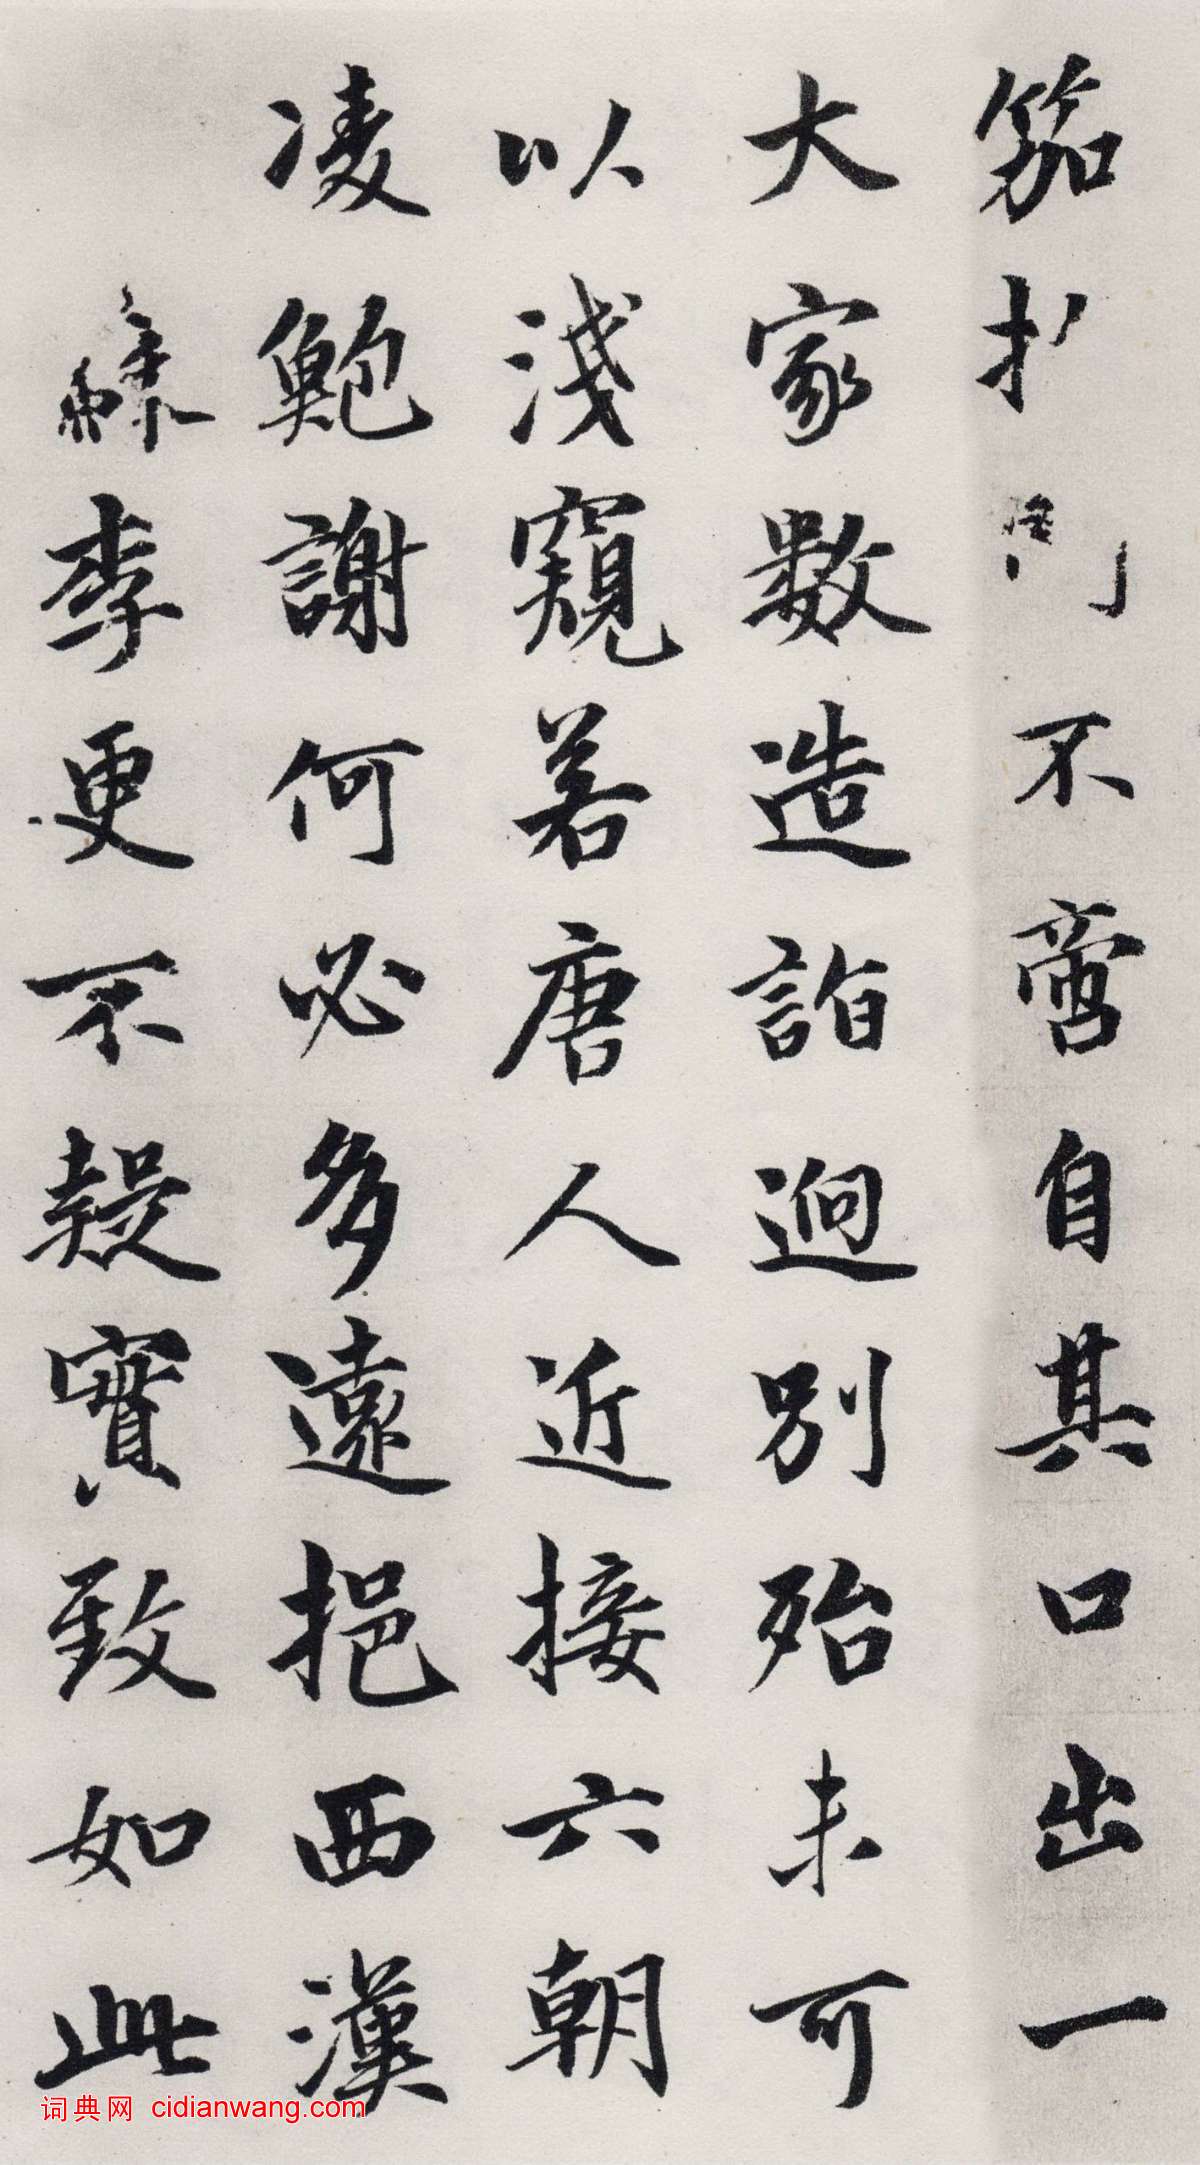 笳不啻自其口出一
大家數造詣迥別殆未可
以淺窺若唐人近接六朝
凌鮑謝何必多遠挹西漢
蘇李更不疑實致如此
词典网 cidianwang.com